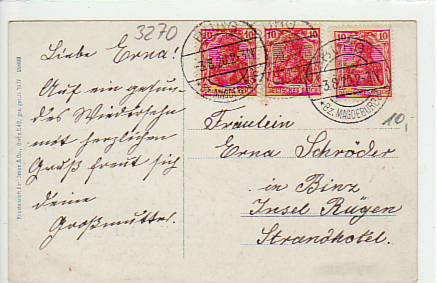 3270
Liebe Erna!
Auf ein gesun-
des Wiedersehn
mit herzlichen
Gruß freut sich
deine
Großmuttel.
10 10
10 10
10 10
DEUTSCHES REICH
BZ. MAGDEBURG
10,
Fräulein
Erna Schröder
in Binz
Insel Rügen
Strandhotel.